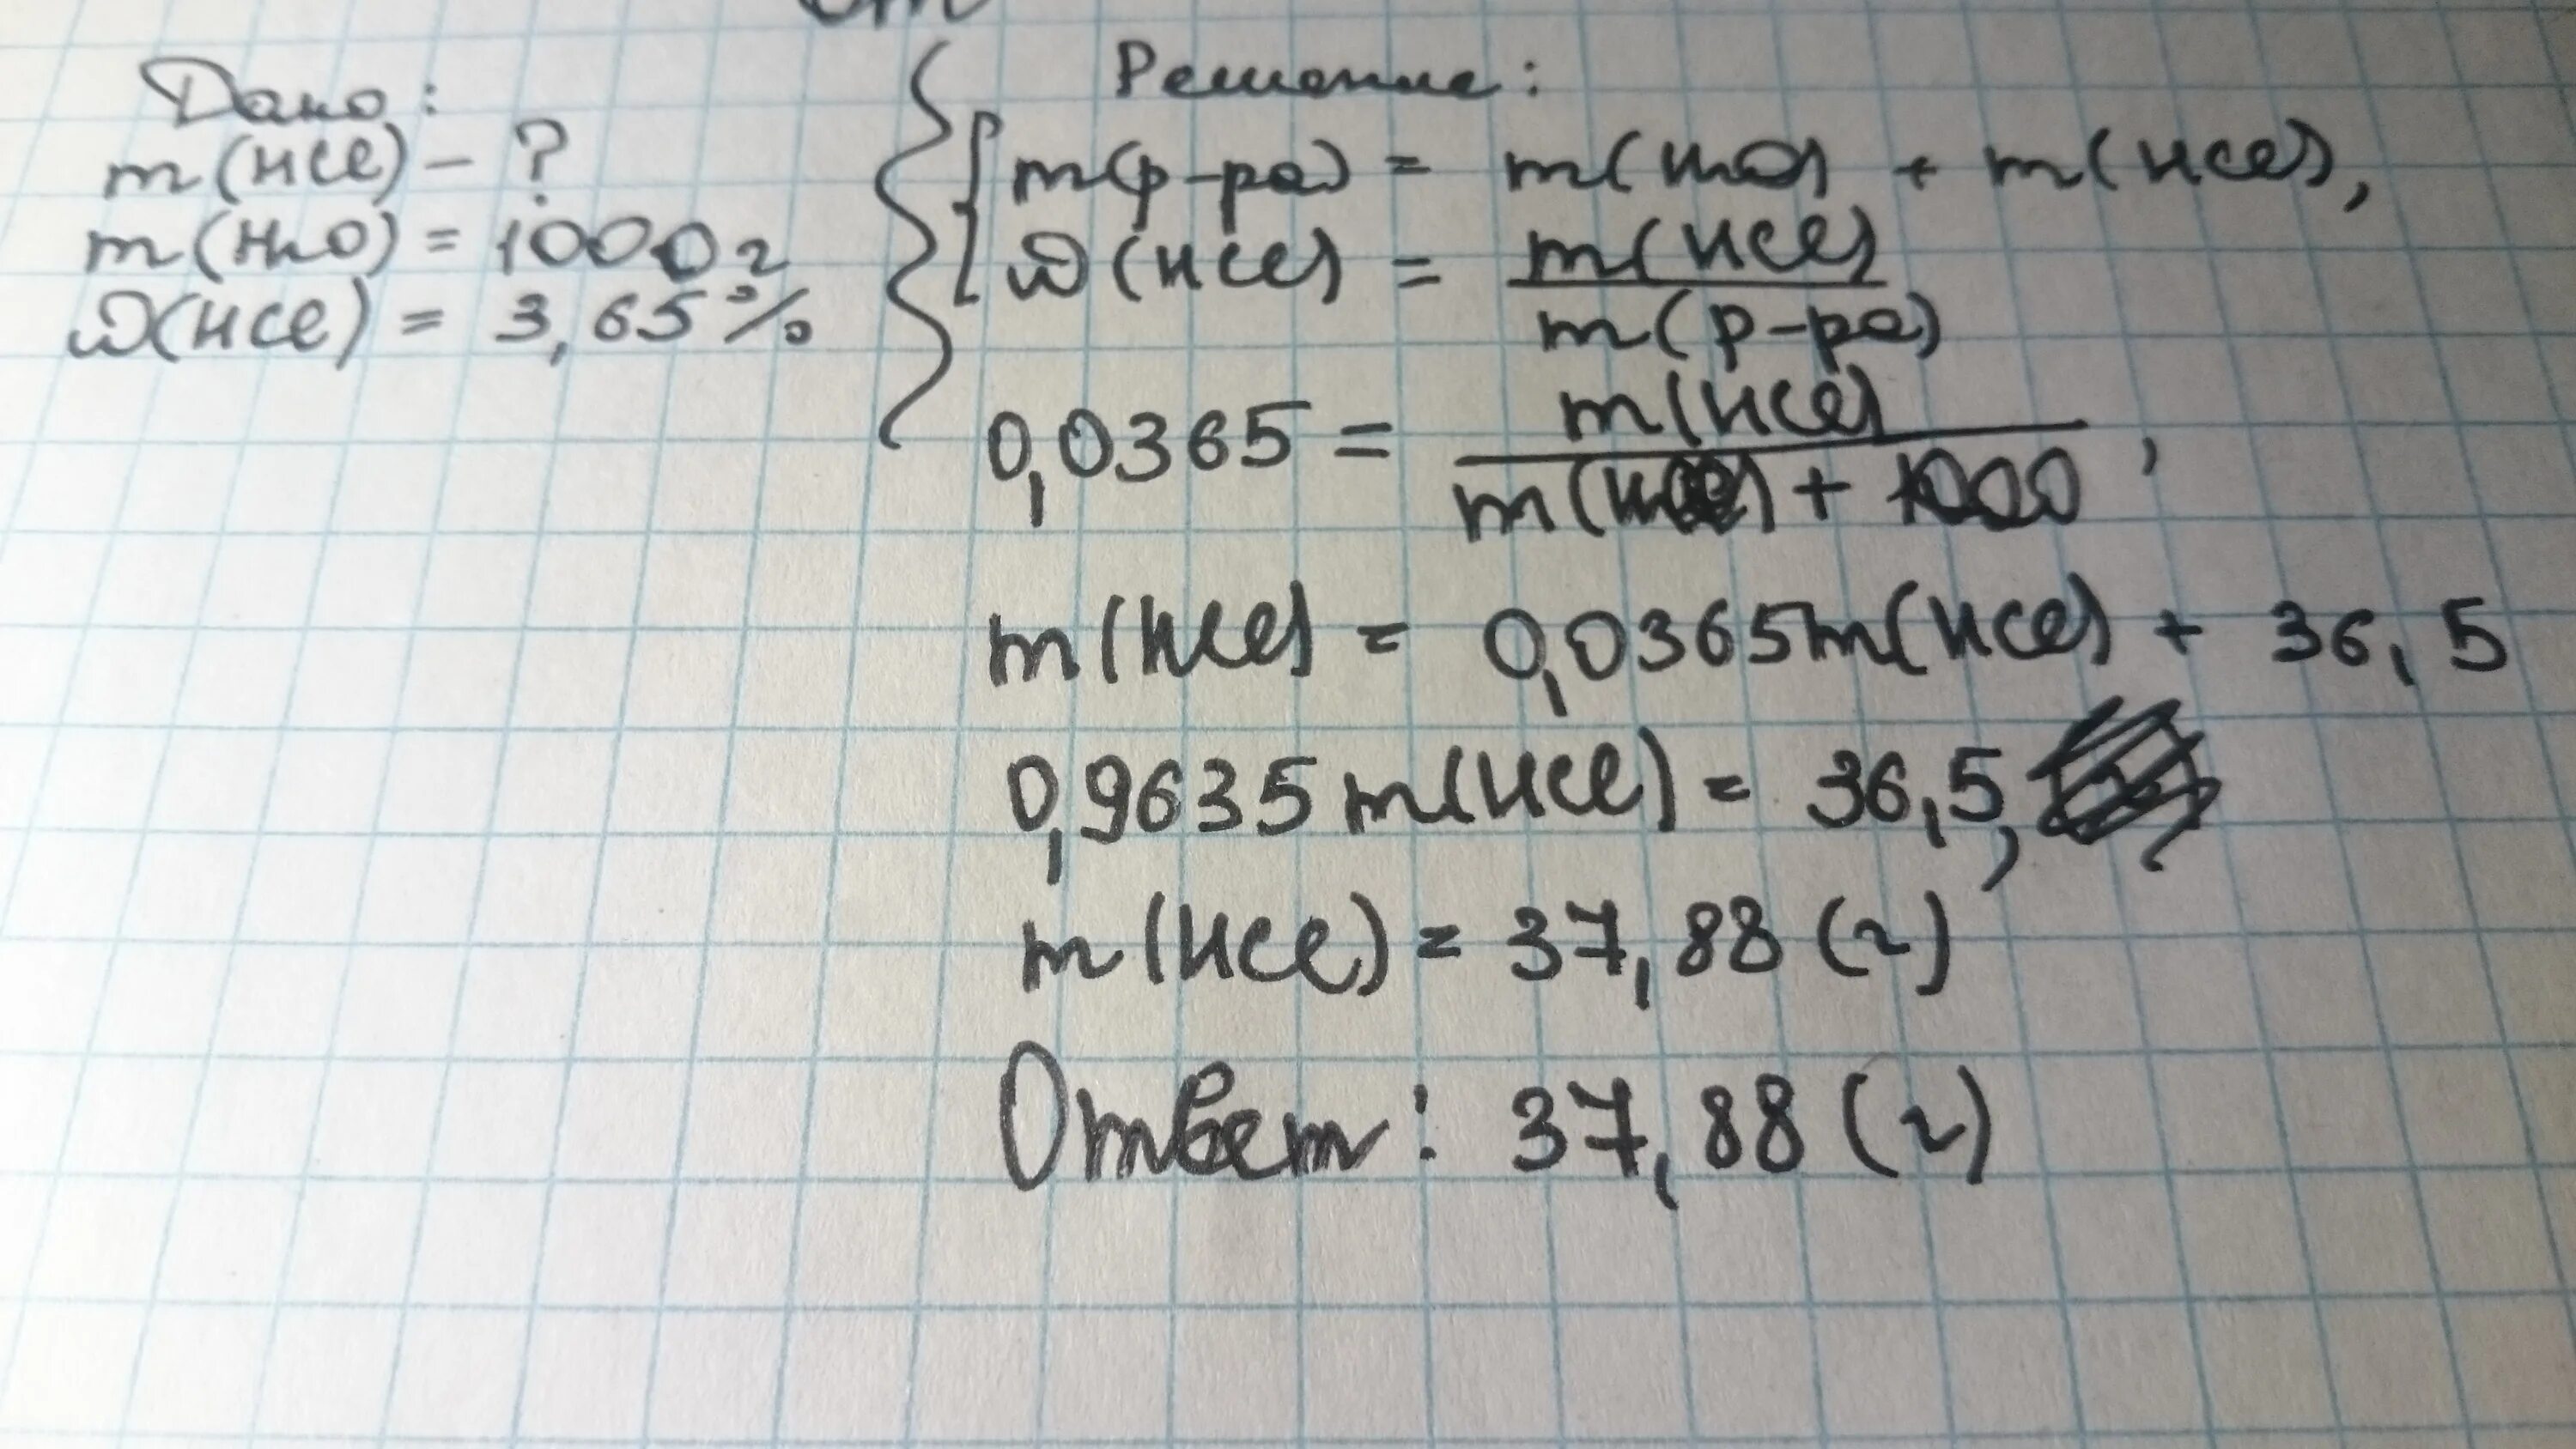 Дано:
m(HCl) – ?
m(H2O) = 1000 г
ω(HCl) = 3,65%
Решение:
m(р-ра) = m(H2O) + m(HCl),
ω(HCl) = m(HCl) / m(р-ра)
0,0365 = m(HCl) / m(HCl) + 1000 ,
m(HCl) = 0,0365m(HCl) + 36,5
0,9635 m(HCl) = 36,5,
m(HCl) = 37,88 (г)
Ответ: 37,88 (г)